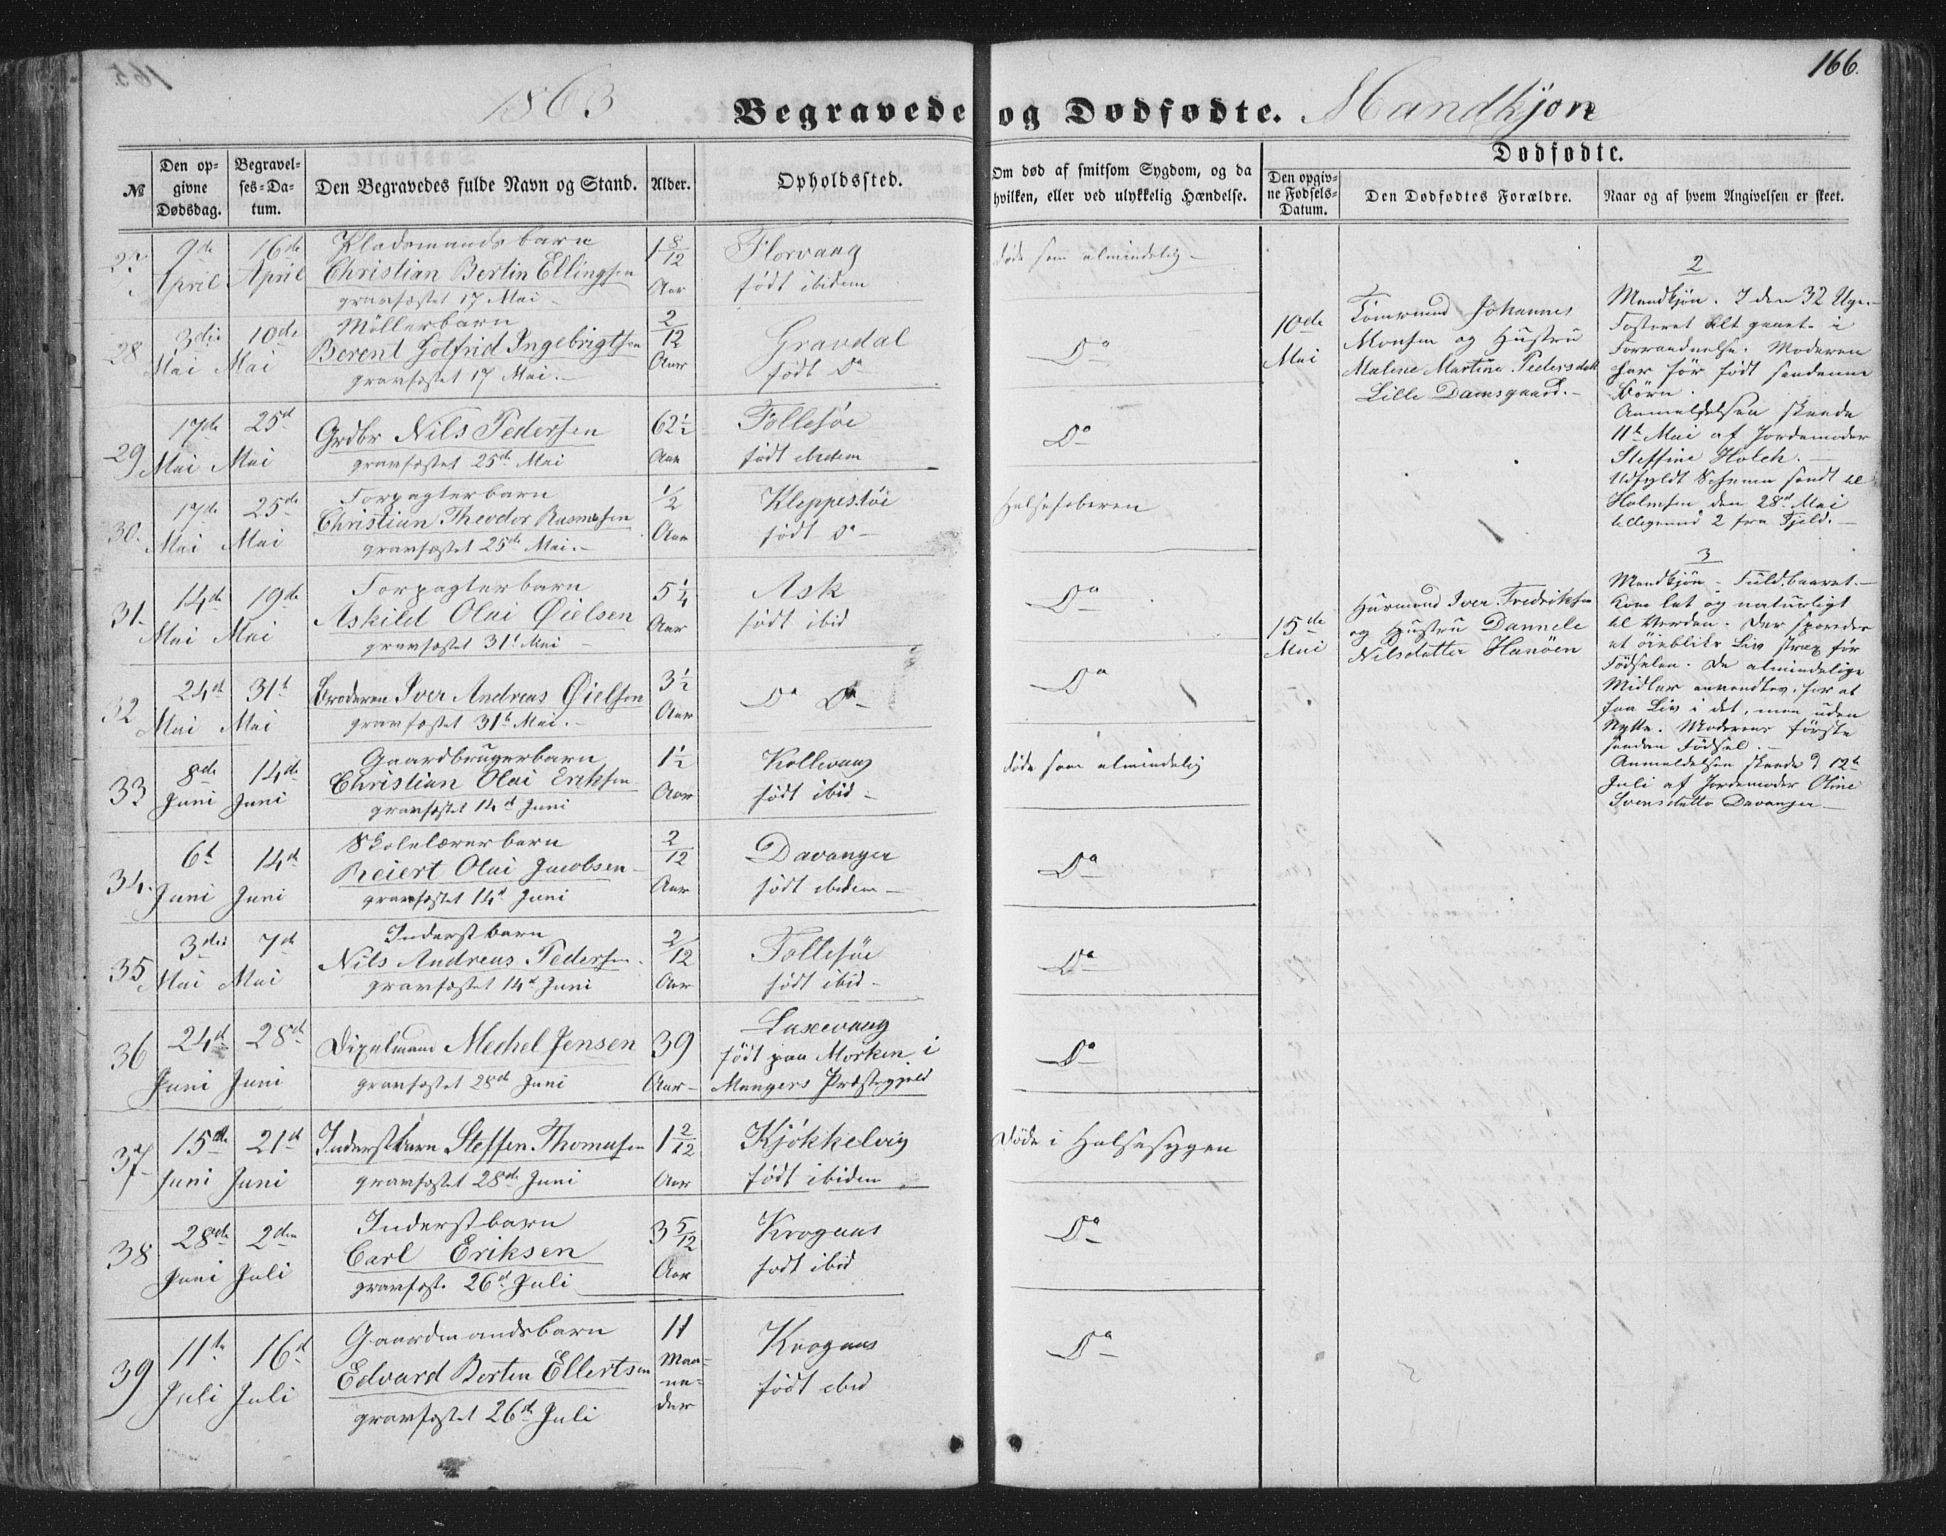 166.
1863
Begravede og Dødfødte. Mandkjøn
№
Den opgivne Dødsdag.
Begravelses-Datum.
Den Begravedes fulde Navn og Stand.
Alder.
Opholdssted.
Om død af smitsom Sygdom, og da hvilken, eller ved ulykkelig Hændelse.
Dødfødte.
Den opgivne Fødsels-Datum.
Den Dødfødtes Forældre.
Naar og af hvem Angivelsen er skeet.
27. 9de April 16de April
Christian Bertin Ellingsen
gravfæstet 17 Mai
1 8/12 Aar
Florvaag
født ibidem
døde som almindelig
28 3die Mai 10de Mai
Møllerbarn
Berent Gotfrid Ingebrigtsen
gravfæstet 17 Mai.
2/12 Aar
Gravdal
født Do
Do
29 17de Mai 25de Mai
Grdbr Nils Pedersen
gravfæstet 25de Mai
62 1/2 Aar
Follesøe
født ibidem
Do
30. 17de Mai 25de Mai
Forpagterbarn
Christian Theodor Rasmussen
gravfæstet 25de Mai.
1/2 Aar
Kleppestøe
født Do
Halsefeberen
31. 14de Mai 19de Mai
Forpagterbarn
Askild Olai Øielsen
gravfæstet 31t Mai
5 1/4 Aar
Ask
født ibid
Do
32 24de Mai 31t Mai
Broderen Iver Andreas Øielsen
gravfæstet 31t Mai.
3 1/2 Aar
Do Do
Do
33 8de Juni 14de Juni
Gaardbrugerbarn
Christian Olai Eriksen
gravfæstet 14d Juni
1 1/2 Aar
Kollevaag
født ibid
døde som almindelig
34. 6t Juni 14d Juni
Skolelærerbarn
Reiert Olai Jacobsen
gravfæstet 14d Juni
2/12 Aar
Davanger
født ibidem
Do
35 3die Mai 7d Mai
Inderstbarn
Nils Andreas Pedersen
gravfæstet 14d Juni
2/12 Aar
Follesøe
født ibid
Do
36 24d Juni 28d Juni
Mechel Jensen
gravfæstet 28de Juni
39 Aar
Laxevaag
født paa Morken i
Mangers Præstegjeld
Do
37 15de Juni 21d Juni
Inderstbarn Steffen Thomasen
gravfæstet 28de Juni
1 2/12 Aar
Kjøkkelvig
født ibidem
Døde i Halsesygen
38 28de Juni 2den Juli
Inderstbarn
Carl Eriksen
gravfæst. 26d Juli
3 5/12 Aar
Krogaas
født ibid
Do
39 11te Juli 16d Juli
Gaardmandsbarn
Edvard Berten Ellertsen
gravfæstet 26de Juli
11 Maaneder
Krogaas
født ibid
Do
10de Mai
Johannes
Monsen og Hustru
Malene Martine Pedersdatt
Lille Damsgaard.
2
Mandkjøn. I den 32 Uge.
Fosteret alt gaaet i
Forraadnelse. Moderen
har før født saadanne
Børn.
Anmeldelsen skeede
11te Mai af Jordemoder
Steffine Holck.
Udfyldt Schema sendt til
Holmsen den 28de Mai
tilligemed 2 fra Fjeld.
15de Mai
Huusmand Iver Fredriksen
og Hustru Dannele
Nilsdatter Hanøen
3
Mandkjøn. Fuldbaaret.
Kom let og naturligt
til Verden. Der sporedes
et øieblik Liv strax før
Fødselen. De almindelige
Midler anvendtes, for at
faa Liv i det, men uden
Nytte. Moderens første
saadan Fødsel.
Anmeldelsen skeede d 12te
Juli af Jordemoder Oline
Svensdatter Davanger